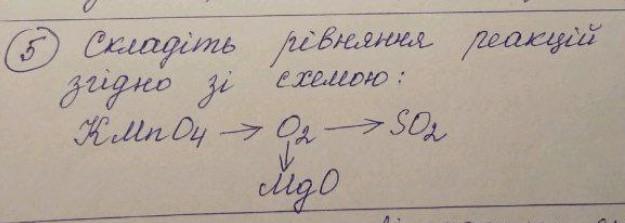 5 Складіть рівняння реакцій
згідно зі схемою:
KMnO4 → O2 → SO2
↓
MgO